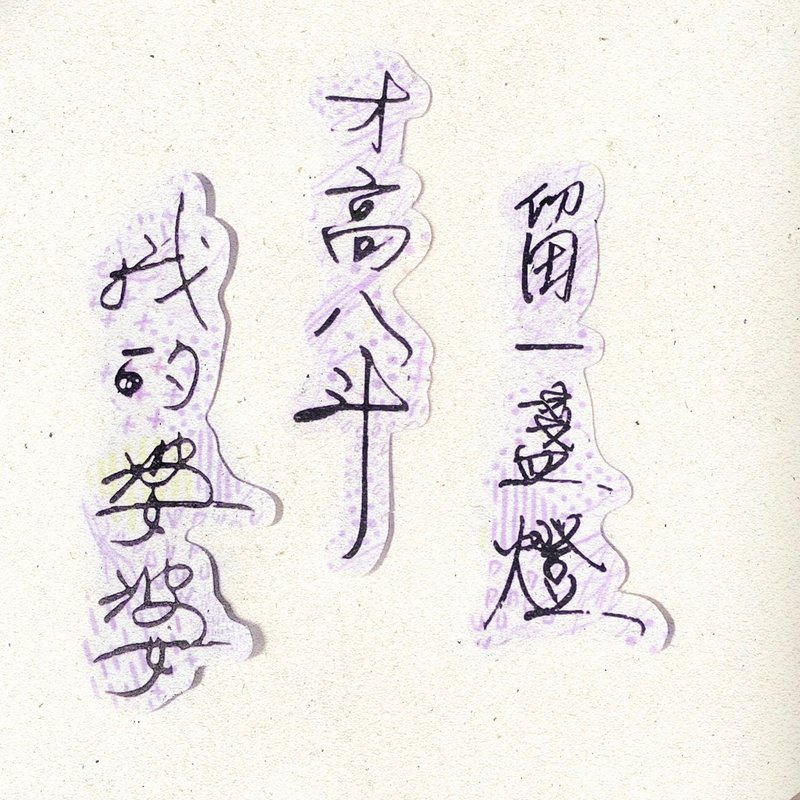 留一盞燈
才高八斗
我的婆婆